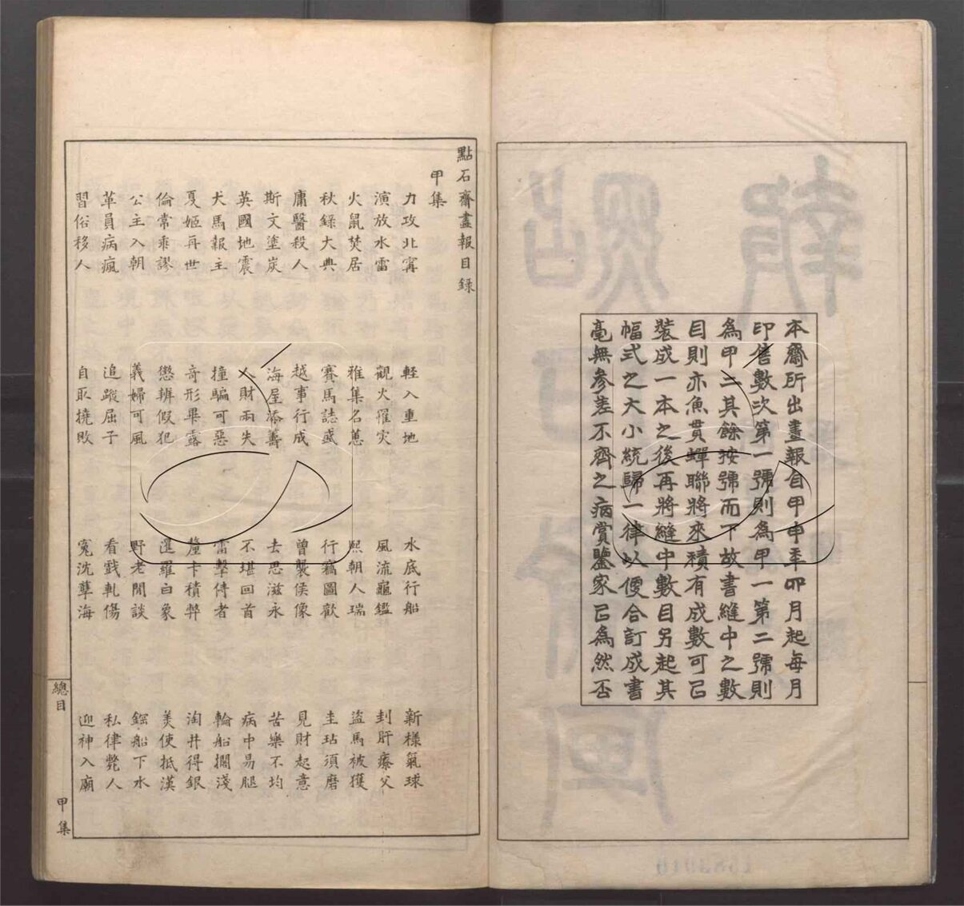 本齋所出畫報自甲申年四月起每月
印售數次第一號則為甲一第二號則
為甲二其餘按號而下故書縫中之數
目則亦魚貫蟬聯將來積有成數可㠯
裝成一本之後再將縫中數目另起其
幅式之大小統歸一律以便合訂成書
毫無參差不齊之病賞鑒家㠯為然否
點石齋畫報目錄
甲集
力攻北甯 輕入重地 水底行船 新樣氣球
演放水雷 觀火罹災 風流龜鑑 刲肝療父
火鼠焚居 雅集名 熙朝人瑞 盜馬被獲
秋錄大典 賽馬誌盛 行竊圖歡 圭玷須磨
庸醫殺人 越事行成 曾襲侯像 見財起意
斯文塗炭 海屋添籌 去思滋永 苦樂不均
英國地震 人財兩失 不堪回首 病中易腿
犬馬報主 撞騙可惡 雷擊傳者 輪船擱淺
夏姬再世 奇形畢露 釐卡積弊 淘井得銀
倫常乖謬 懲辨假犯 暹羅白象 美使抵漢
公主入朝 義婦可風 野老閒談 船下水
革員病瘋 追蹤屈子 看戲軋傷 私律斃人
習俗移人 自取撓敗 冤沈孽海 迎神入廟
總目
甲集